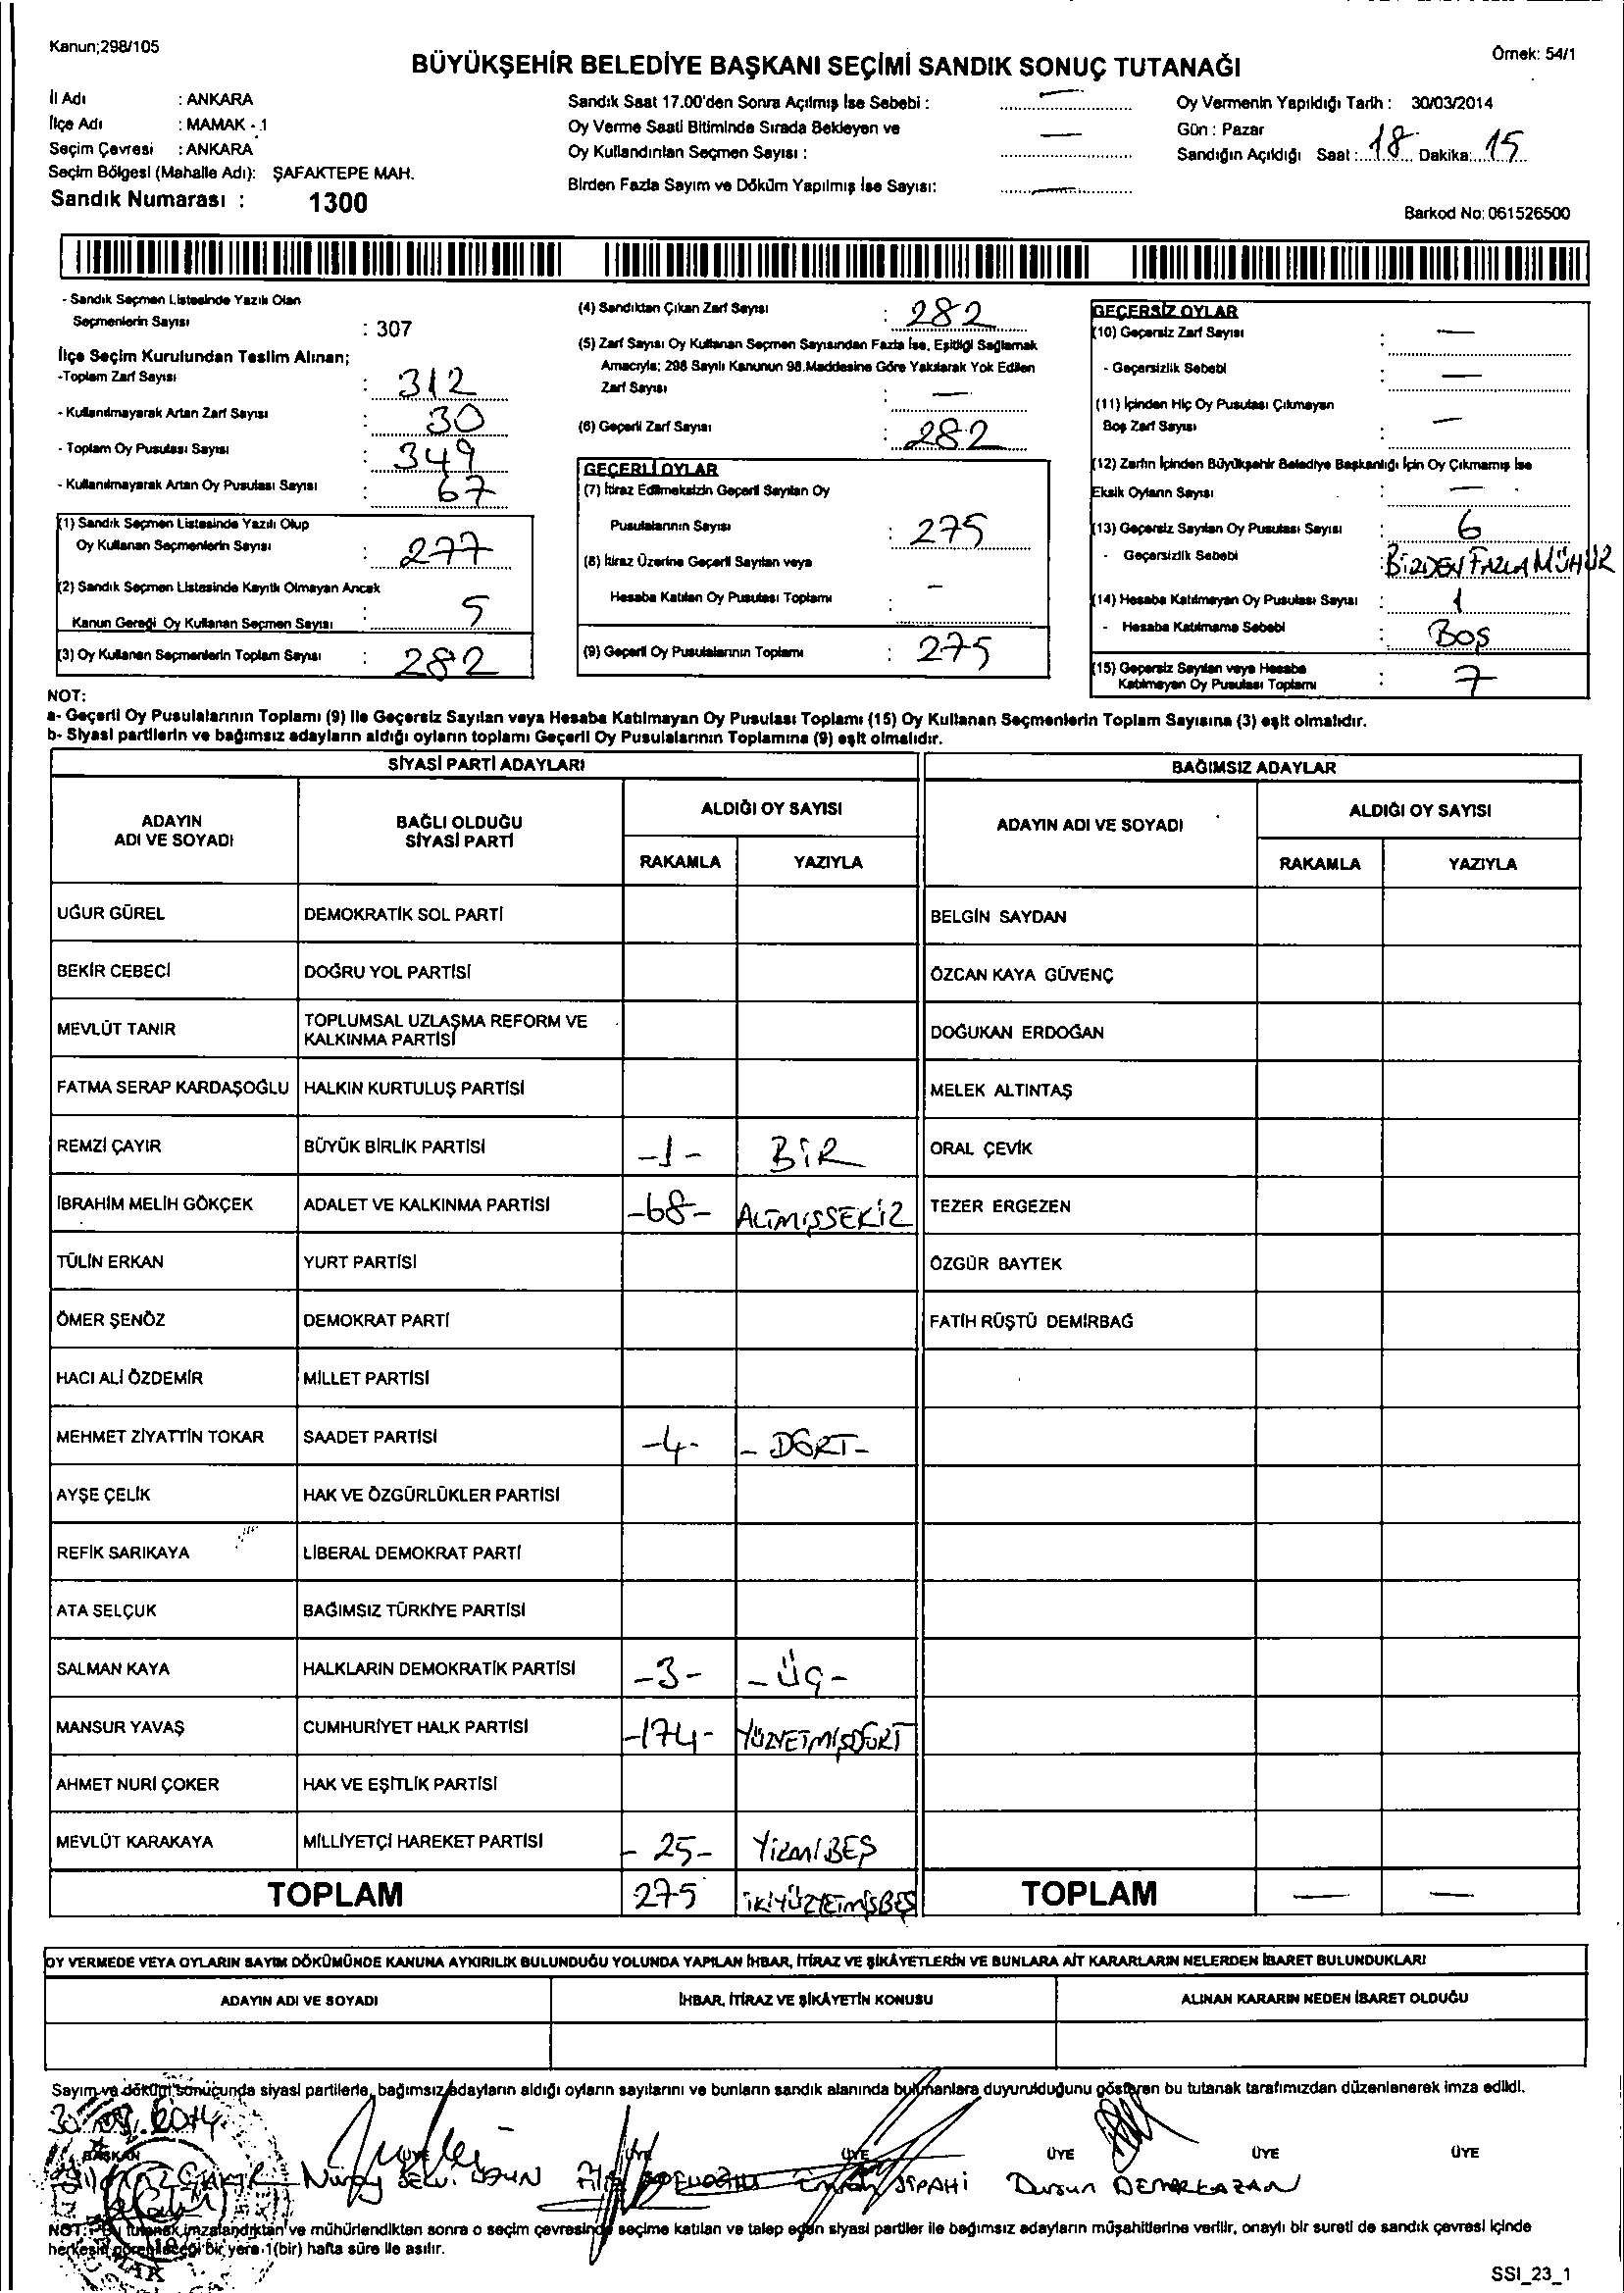 Kanun;298/105
Örnek: 54/1
BÜYÜKŞEHİR BELEDİYE BAŞKANI SEÇİMİ SANDIK SONUÇ TUTANAĞI
İl Adı : ANKARA
İlçe Adı : MAMAK - 1
Seçim Çevresi : ANKARA
Seçim Bölgesi (Mahalle Adı): ŞAFAKTEPE MAH.
Sandık Numarası : 1300
Sandık Saat 17.00'den Sonra Açılmış İse Sebebi : —
Oy Verme Saati Bitiminde Sırada Bekleyen ve
Oy Kullandırılan Seçmen Sayısı : —
Birden Fazla Sayım ve Döküm Yapılmış İse Sayısı: —
Oy Vermenin Yapıldığı Tarih : 30/03/2014
Gün : Pazar
Sandığın Açıldığı Saat : 18 Dakika: 15
Barkod No: 061526500
- Sandık Seçmen Listesinde Yazılı Olan
Seçmenlerin Sayısı : 307
İlçe Seçim Kurulundan Teslim Alınan;
-Toplam Zarf Sayısı : 312
- Kullanılmayarak Artan Zarf Sayısı : 30
- Toplam Oy Pusulası Sayısı : 349
- Kullanılmayarak Artan Oy Pusulası Sayısı : 67
(1) Sandık Seçmen Listesinde Yazılı Olup
Oy Kullanan Seçmenlerin Sayısı : 277
(2) Sandık Seçmen Listesinde Kayıtlı Olmayan Ancak
Kanun Gereği Oy Kullanan Seçmen Sayısı : 5
(3) Oy Kullanan Seçmenlerin Toplam Sayısı : 282
(4) Sandıktan Çıkan Zarf Sayısı : 282
(5) Zarf Sayısı Oy Kullanan Seçmen Sayısından Fazla İse, Eşitliği Sağlamak
Amacıyla; 298 Sayılı Kanunun 98.Maddesine Göre Yakılarak Yok Edilen
Zarf Sayısı : —
(6) Geçerli Zarf Sayısı : 282
GEÇERLİ OYLAR
(7) İtiraz Edilmeksizin Geçerli Sayılan Oy
Pusulalarının Sayısı : 275
(8) İtiraz Üzerine Geçerli Sayılan veya
Hesaba Katılan Oy Pusulası Toplamı : —
(9) Geçerli Oy Pusulalarının Toplamı : 275
GEÇERSİZ OYLAR
(10) Geçersiz Zarf Sayısı : —
- Geçersizlik Sebebi : —
(11) İçinden Hiç Oy Pusulası Çıkmayan
Boş Zarf Sayısı : —
(12) Zarfın İçinden Büyükşehir Belediye Başkanlığı İçin Oy Çıkmamış İse
Eksik Oyların Sayısı : —
(13) Geçersiz Sayılan Oy Pusulası Sayısı : 6
- Geçersizlik Sebebi : BİRDEN FAZLA MÜHÜR
(14) Hesaba Katılmayan Oy Pusulası Sayısı : 1
- Hesaba Katılmama Sebebi : BOŞ
(15) Geçersiz Sayılan veya Hesaba
Katılmayan Oy Pusulası Toplamı : 7
NOT:
a- Geçerli Oy Pusulalarının Toplamı (9) ile Geçersiz Sayılan veya Hesaba Katılmayan Oy Pusulası Toplamı (15) Oy Kullanan Seçmenlerin Toplam Sayısına (3) eşit olmalıdır.
b- Siyasi partilerin ve bağımsız adayların aldığı oyların toplamı Geçerli Oy Pusulalarının Toplamına (9) eşit olmalıdır.
SİYASİ PARTİ ADAYLARI
BAĞIMSIZ ADAYLAR
ADAYIN ADI VE SOYADI
BAĞLI OLDUĞU SİYASİ PARTİ
ALDIĞI OY SAYISI
RAKAMLA YAZIYLA
ADAYIN ADI VE SOYADI
ALDIĞI OY SAYISI
RAKAMLA YAZIYLA
UĞUR GÜREL DEMOKRATİK SOL PARTİ BELGİN SAYDAN
BEKİR CEBECİ DOĞRU YOL PARTİSİ ÖZCAN KAYA GÜVENÇ
MEVLÜT TANIR TOPLUMSAL UZLAŞMA REFORM VE KALKINMA PARTİSİ DOĞUKAN ERDOĞAN
FATMA SERAP KARDAŞOĞLU HALKIN KURTULUŞ PARTİSİ MELEK ALTINTAŞ
REMZİ ÇAYIR BÜYÜK BİRLİK PARTİSİ -1- BİR ORAL ÇEVİK
İBRAHİM MELİH GÖKÇEK ADALET VE KALKINMA PARTİSİ -68- ALTMIŞSEKİZ TEZER ERGEZEN
TÜLİN ERKAN YURT PARTİSİ ÖZGÜR BAYTEK
ÖMER ŞENÖZ DEMOKRAT PARTİ FATİH RÜŞTÜ DEMİRBAĞ
HACI ALİ ÖZDEMİR MİLLET PARTİSİ
MEHMET ZİYATTİN TOKAR SAADET PARTİSİ -4- -DÖRT-
AYŞE ÇELİK HAK VE ÖZGÜRLÜKLER PARTİSİ
REFİK SARIKAYA LİBERAL DEMOKRAT PARTİ
ATA SELÇUK BAĞIMSIZ TÜRKİYE PARTİSİ
SALMAN KAYA HALKLARIN DEMOKRATİK PARTİSİ -3- -ÜÇ-
MANSUR YAVAŞ CUMHURİYET HALK PARTİSİ -174- YÜZYETMİŞDÖRT
AHMET NURİ ÇOKER HAK VE EŞİTLİK PARTİSİ
MEVLÜT KARAKAYA MİLLİYETÇİ HAREKET PARTİSİ -25- YİRMİBEŞ
TOPLAM 275 İKİYÜZYETMİŞBEŞ TOPLAM — —
OY VERMEDE VEYA OYLARIN SAYIM DÖKÜMÜNDE KANUNA AYKIRILIK BULUNDUĞU YOLUNDA YAPILAN İHBAR, İTİRAZ VE ŞİKÂYETLERİN VE BUNLARA AİT KARARLARIN NELERDEN İBARET BULUNDUKLARI
ADAYIN ADI VE SOYADI İHBAR, İTİRAZ VE ŞİKÂYETİN KONUSU ALINAN KARARIN NEDEN İBARET OLDUĞU
Sayım ve döküm sonucunda siyasi partilerle, bağımsız adayların aldığı oyların sayılarını ve bunların sandık alanında bulunanlara duyurulduğunu gösteren bu tutanak tarafımızdan düzenlenerek imza edildi.
30.03.2014
BAŞKAN ÜYE ÜYE ÜYE ÜYE ÜYE ÜYE
SİPAHİ Dursun
NOT: Bu tutanak imzalandıktan ve mühürlendikten sonra o seçim çevresinde seçime katılan ve talep eden siyasi partiler ile bağımsız adayların müşahitlerine verilir, onaylı bir sureti de sandık çevresi içinde
herkesin görebileceği bir yere 1(bir) hafta süre ile asılır.
SSI_23_1